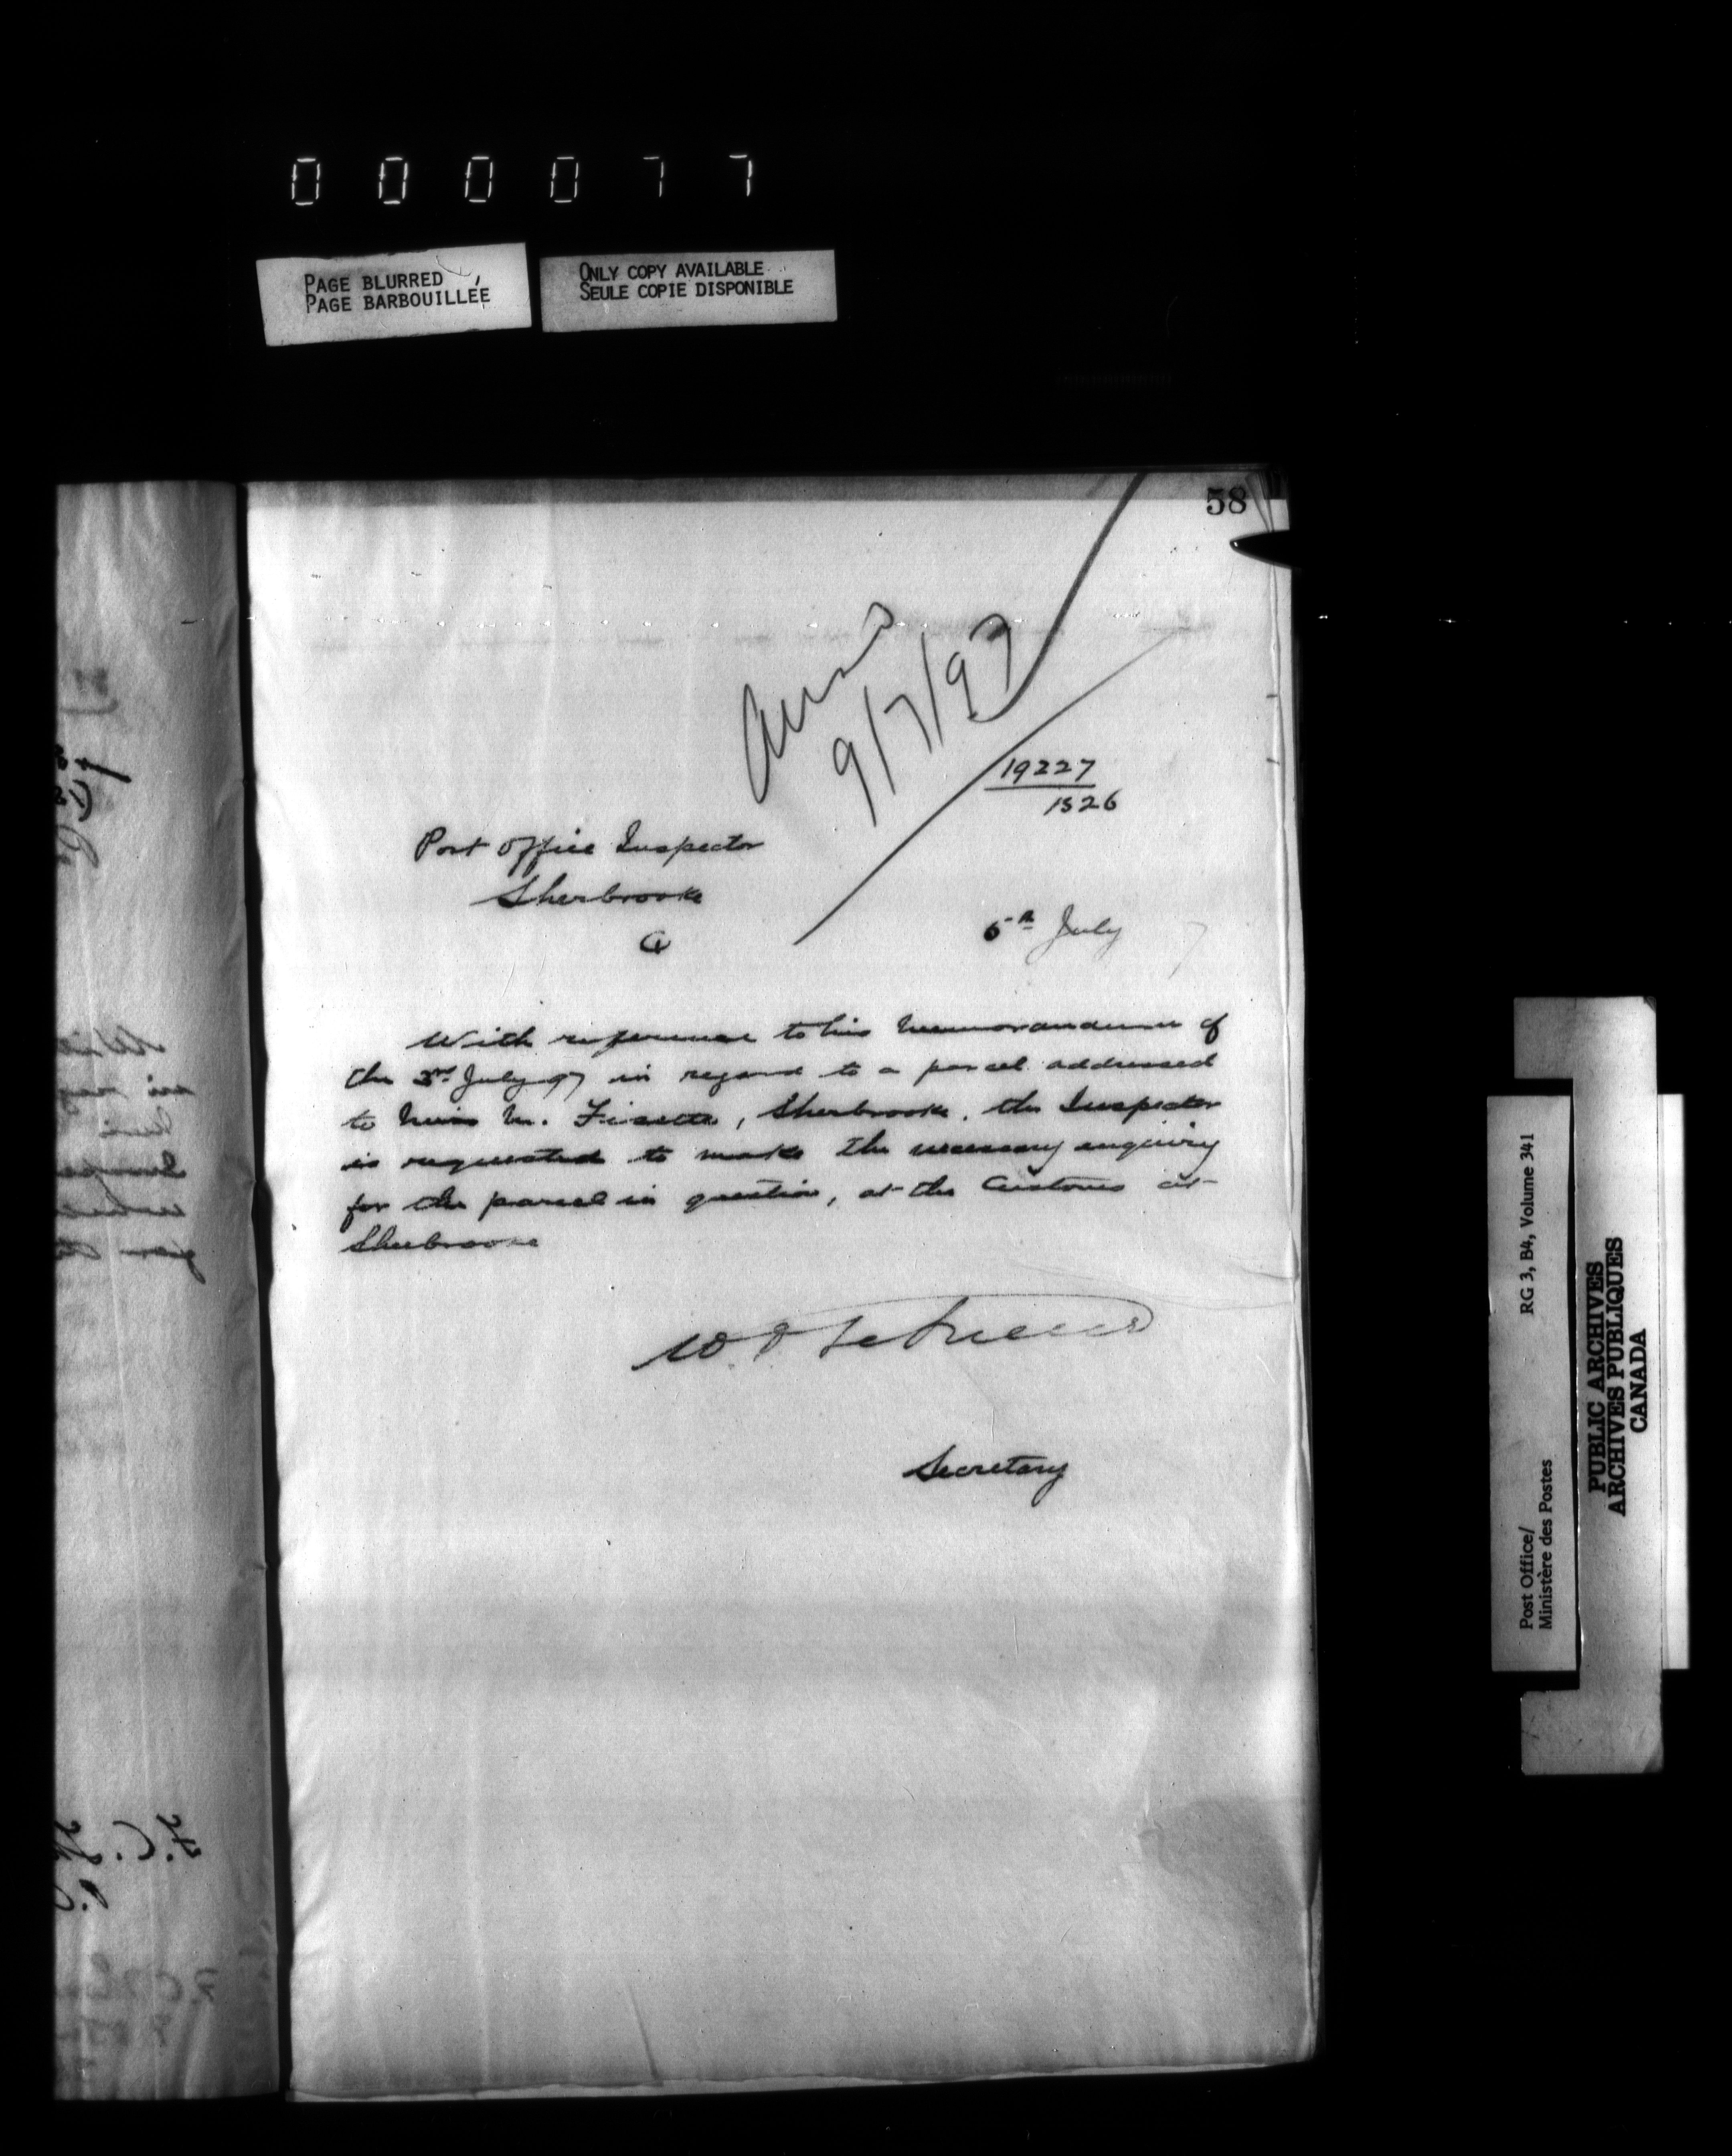 000077
PAGE BLURRED
PAGE BARBOUILLÉE
ONLY COPY AVAILABLE
SEULE COPIE DISPONIBLE
58
Ansd
9/7/97
19227
1326
Post Office Inspector
Sherbrooke
Q
5th July 7
With reference to his Memorandum of
the 3rd July 97 in regard to a parcel addressed
to Miss M. Fisette, Sherbrooke, the Inspector
is requested to make the necessary enquiry
for the parcel in question, at the Customs at
Sherbrooke
Secretary
Post Office/
Ministère des Postes
RG 3, B4, Volume 341
PUBLIC ARCHIVES
ARCHIVES PUBLIQUES
CANADA